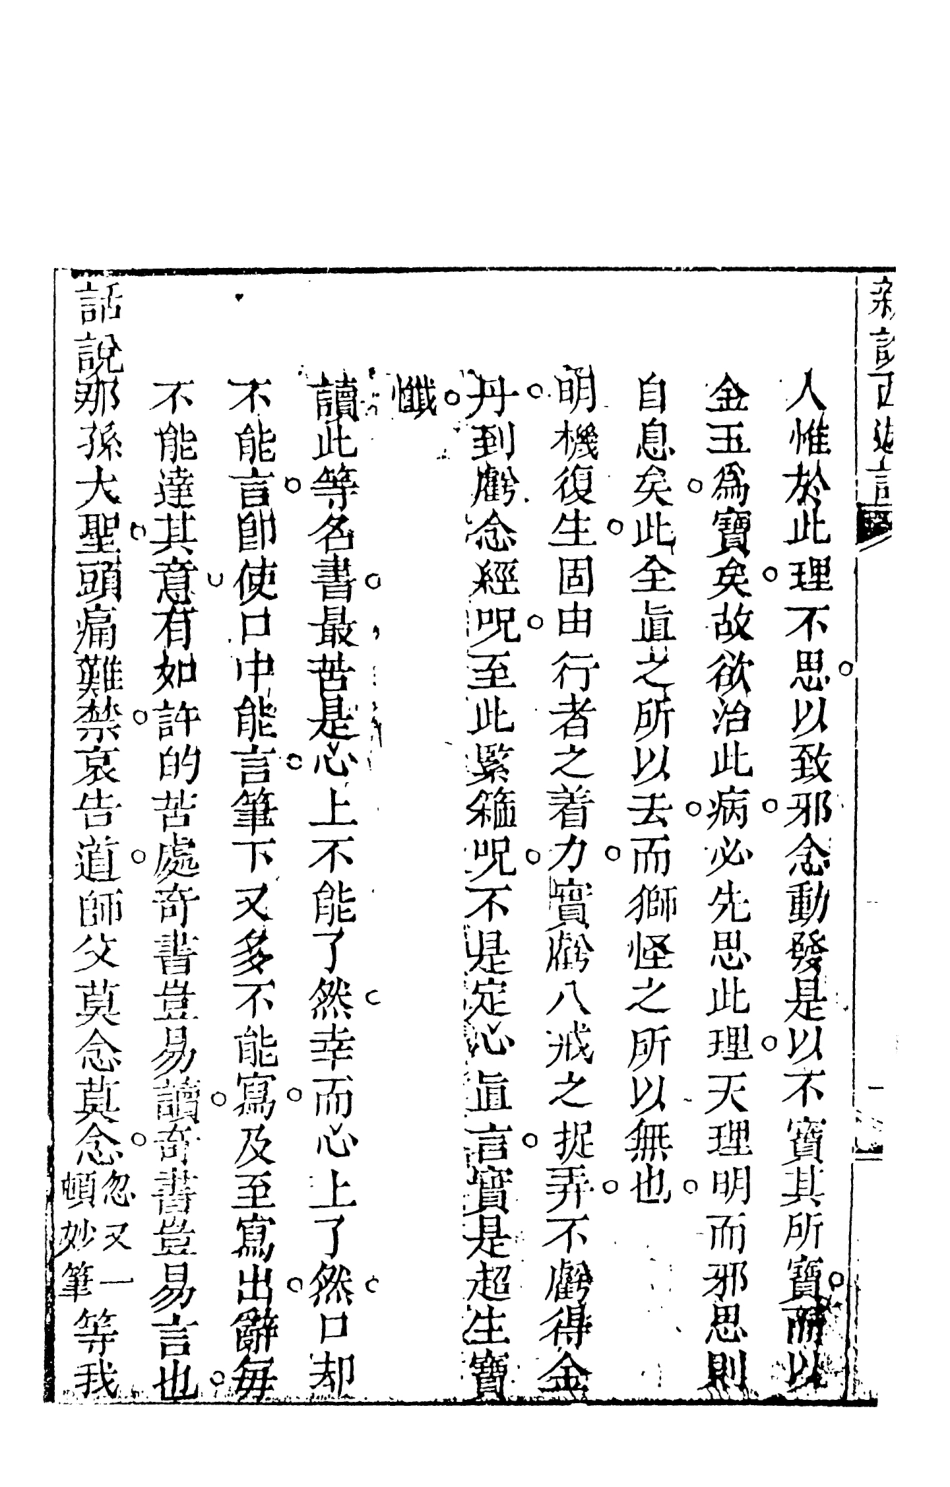 新說西遊記
人惟於此理不思以致邪念動發是以不寶其所寶而以
金玉爲寶矣故欲治此病必先思此理天理明而邪思則
自息矣此全眞之所以去而獅怪之所以無也
明機復生固由行者之着力實虧八戒之捉弄不虧得金
丹到虧念經呪至此緊箍呪不是定心眞言實是超生寶
懺
讀此等名書最苦是心上不能了然幸而心上了然口却
不能言卽使口中能言筆下又多不能寫及至寫出辭每
不能達其意有如許的苦處奇書豈易讀奇書豈易言也
話說那孫大聖頭痛難禁哀告道師父莫念莫念忽又一頓妙筆等我